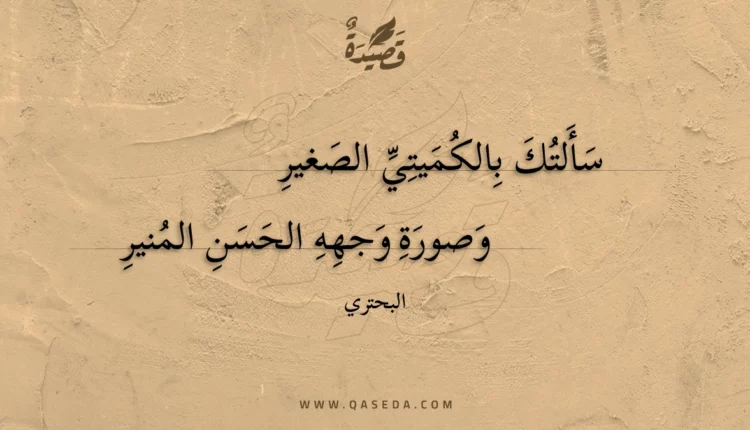 قَصِيْدَةٌ
سَأَلتُكَ بِالكُمَيتِيِّ الصَغيرِ
وَصورَةِ وَجهِهِ الحَسَنِ المُنيرِ
البحتري
WWW.QASEDA.COM